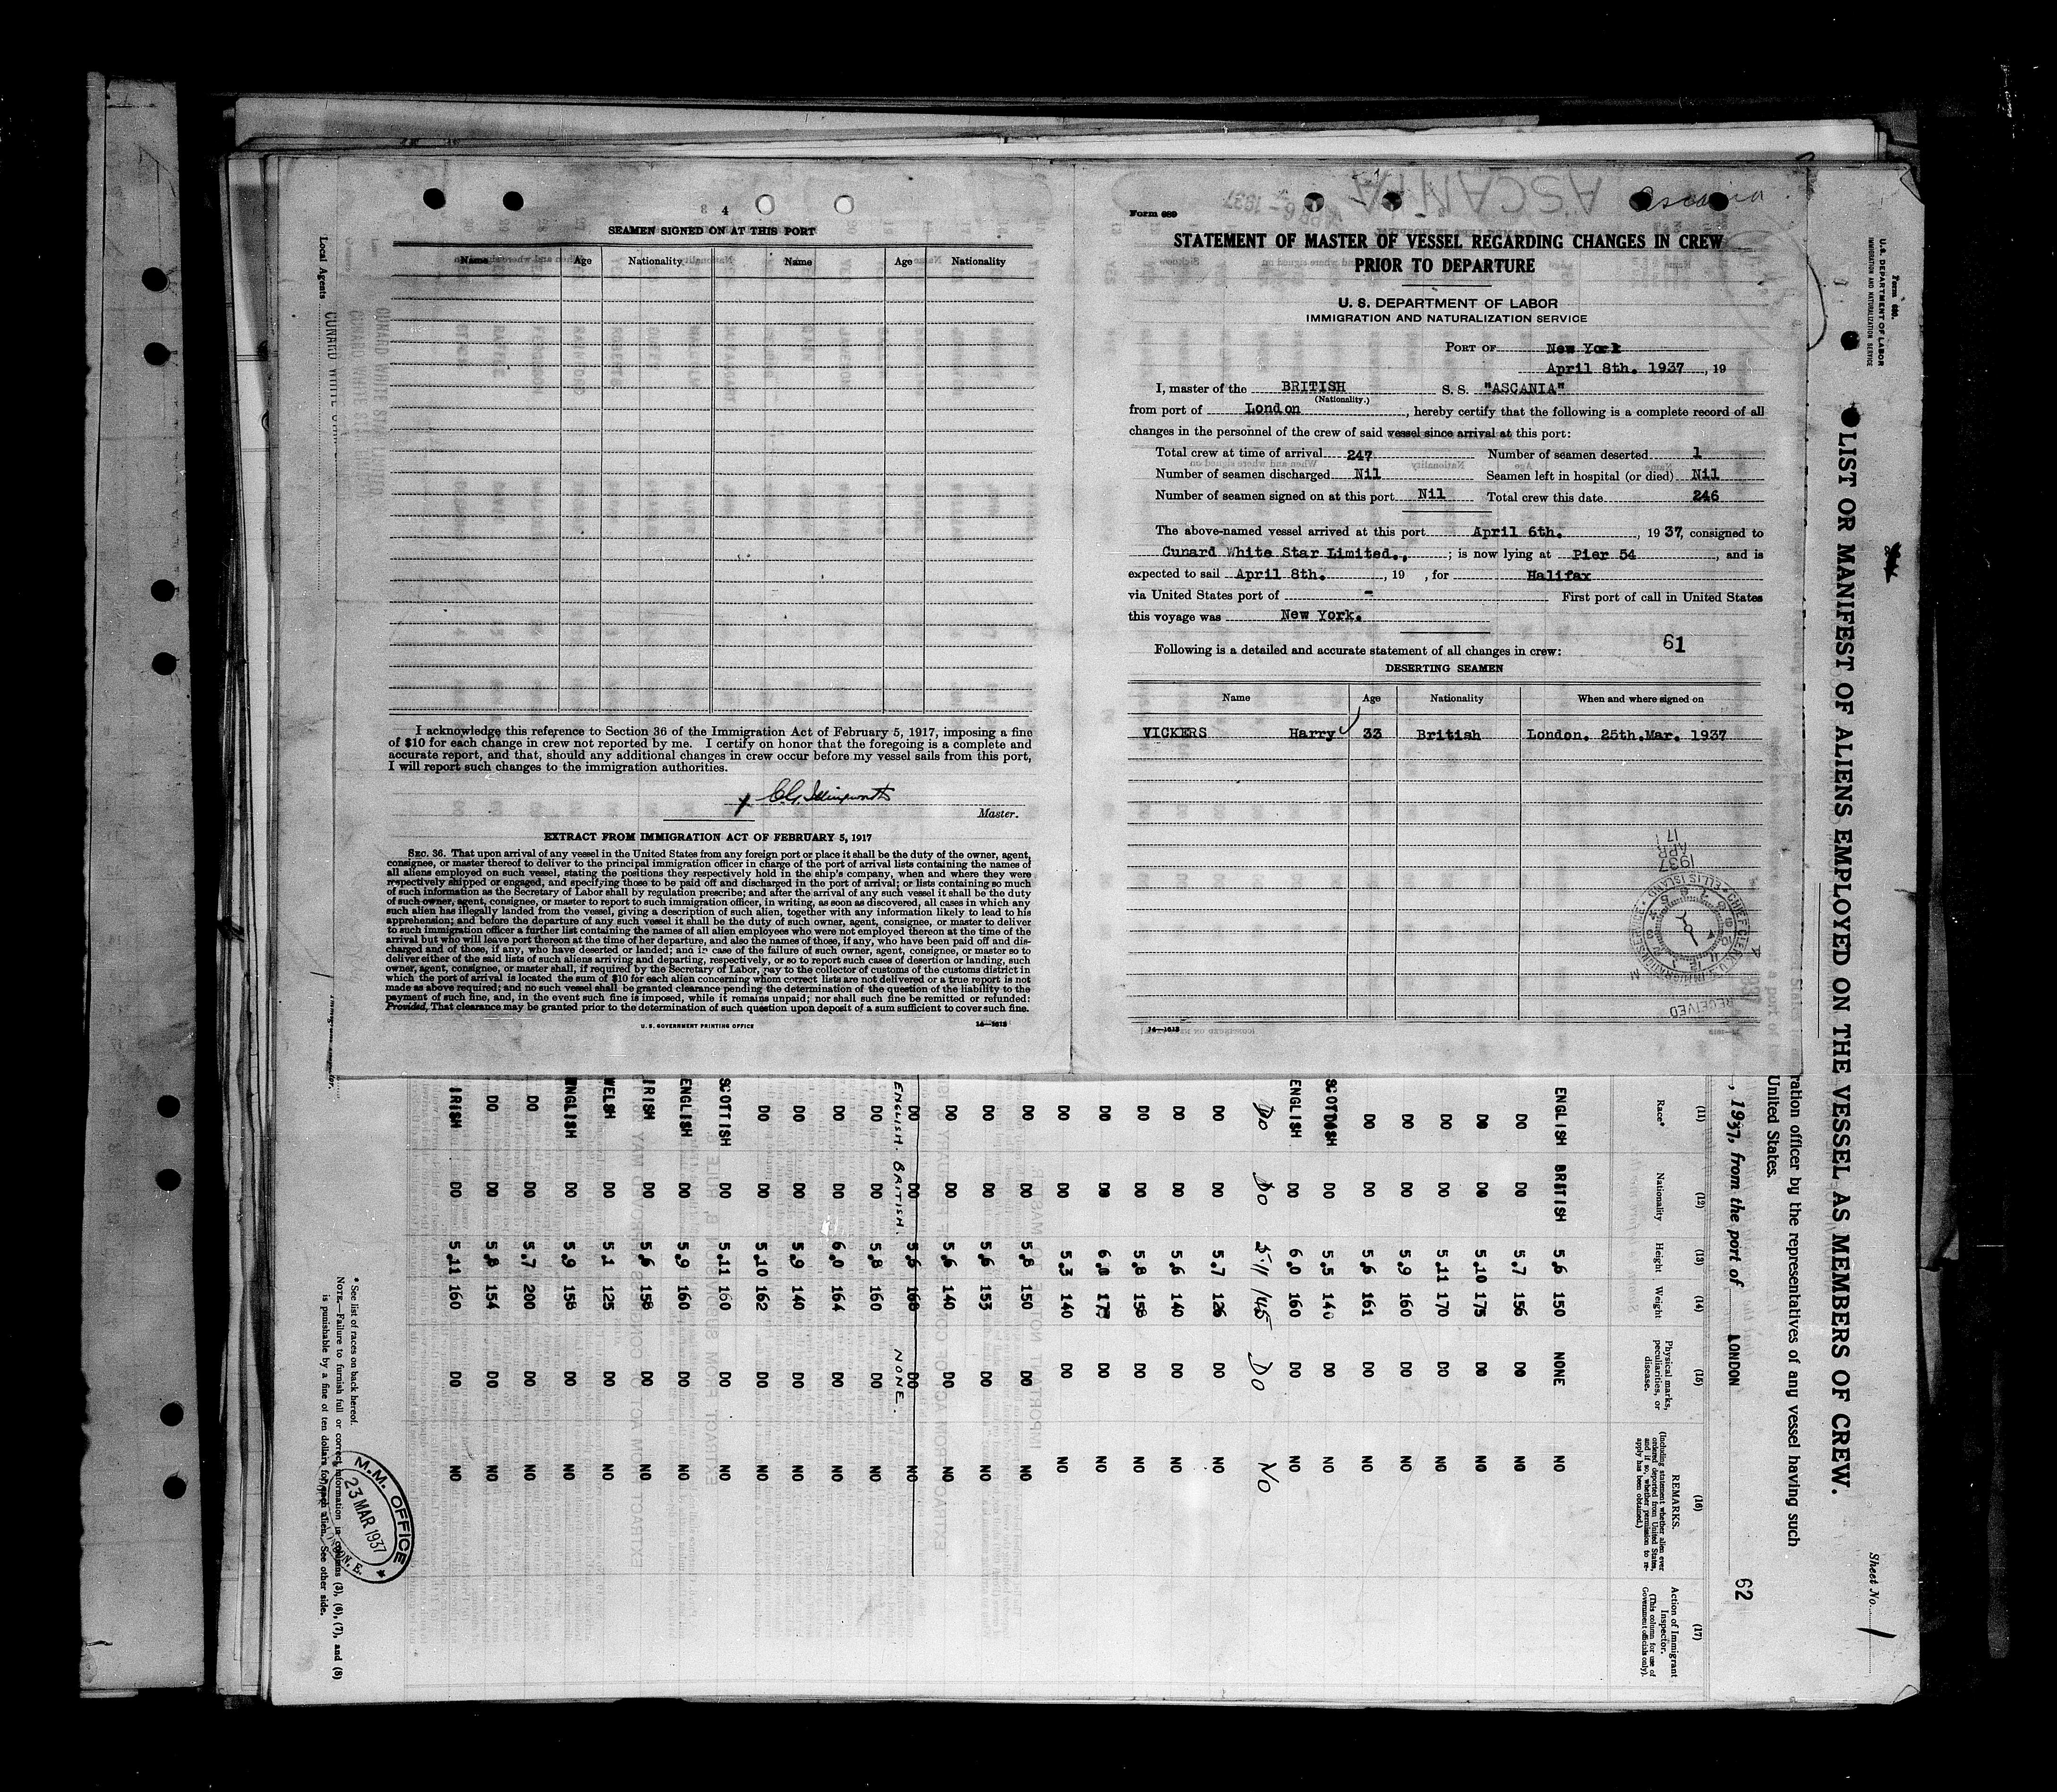 4
SEAMEN SIGNED ON AT THIS PORT
Name Age Nationality Name Age Nationality
I acknowledge this reference to Section 36 of the Immigration Act of February 5, 1917, imposing a fine
of $10 for each change in crew not reported by me. I certify on honor that the foregoing is a complete and
accurate report, and that, should any additional changes in crew occur before my vessel sails from this port,
I will report such changes to the immigration authorities.
Master.
EXTRACT FROM IMMIGRATION ACT OF FEBRUARY 5, 1917
SEC. 36. That upon arrival of any vessel in the United States from any foreign port or place it shall be the duty of the owner, agent,
consignee, or master thereof to deliver to the principal immigration officer in charge of the port of arrival lists containing the names of
all aliens employed on such vessel, stating the positions they respectively hold in the ship's company, when and where they were
respectively shipped or engaged, and specifying those to be paid off and discharged in the port of arrival; or lists containing so much
of such information as the Secretary of Labor shall by regulation prescribe; and after the arrival of any such vessel it shall be the duty
of such owner, agent, consignee, or master to report to such immigration officer, in writing, as soon as discovered, all cases in which any
such alien has illegally landed from the vessel, giving a description of such alien, together with any information likely to lead to his
apprehension; and before the departure of any such vessel it shall be the duty of such owner, agent, consignee, or master to deliver
to such immigration officer a further list containing the names of all alien employees who were not employed thereon at the time of the
arrival but who will leave port thereon at the time of her departure, and also the names of those, if any, who have been paid off and dis-
charged and of those, if any, who have deserted or landed; and in case of the failure of such owner, agent, consignee, or master so to
deliver either of the said lists of such aliens arriving and departing, respectively, or so to report such cases of desertion or landing, such
owner, agent, consignee, or master shall, if required by the Secretary of Labor, pay to the collector of customs of the customs district in
which the port of arrival is located the sum of $10 for each alien concerning whom correct lists are not delivered or a true report is not
made as above required; and no such vessel shall be granted clearance pending the determination of the question of the liability to the
payment of such fine, and, in the event such fine is imposed, while it remains unpaid; nor shall such fine be remitted or refunded:
Provided, That clearance may be granted prior to the determination of such question upon deposit of a sum sufficient to cover such fine.
U. S. GOVERNMENT PRINTING OFFICE 14—1613
Ascania
Form 689
STATEMENT OF MASTER OF VESSEL REGARDING CHANGES IN CREW
PRIOR TO DEPARTURE
U. S. DEPARTMENT OF LABOR
IMMIGRATION AND NATURALIZATION SERVICE
PORT OF New York
April 8th. 1937, 19
I, master of the BRITISH S. S. "ASCANIA"
(Nationality.)
from port of London, hereby certify that the following is a complete record of all
changes in the personnel of the crew of said vessel since arrival at this port:
Total crew at time of arrival 247 Number of seamen deserted 1
Number of seamen discharged Nil Seamen left in hospital (or died) Nil
Number of seamen signed on at this port Nil Total crew this date 246
The above-named vessel arrived at this port April 6th., 1937, consigned to
Cunard White Star Limited.,; is now lying at Pier 54, and is
expected to sail April 8th., 19 , for Halifax
via United States port of - First port of call in United States
this voyage was New York.
61
Following is a detailed and accurate statement of all changes in crew:
DESERTING SEAMEN
Name Age Nationality When and where signed on
VICKERS Harry 33 British London. 25th.Mar. 1937
14—1613
RECEIVED
1937 APR 17
Local Agents
Form 680.
U. S. DEPARTMENT OF LABOR
IMMIGRATION AND NATURALIZATION SERVICE
Sheet No. 1
LIST OR MANIFEST OF ALIENS EMPLOYED ON THE VESSEL AS MEMBERS OF CREW.
ration officer by the representatives of any vessel having such
United States.
, 1937, from the port of LONDON
62
(11) (12) (13) (14) (15) (16) (17)
Race* Nationality Height Weight Physical marks, peculiarities, or disease. REMARKS. (Including statement whether alien ever ordered deported from United States, and if so, whether permission to re-apply has been obtained.) Action of Immigrant Inspector. (This column for use of Government officials only).
ENGLISH BRITISH 5.6 150 NONE NO
DO DO 5.7 156 DO NO
DO DO 5.10 175 DO NO
DO DO 5.11 170 DO NO
DO DO 5.9 160 DO NO
DO DO 5.6 161 DO NO
SCOTTISH DO 5.5 140 DO NO
ENGLISH DO 6.0 160 DO NO
Do Do 5-11 145 Do No
DO DO 5.7 126 DO NO
DO DO 5.6 140 DO NO
DO DO 5.8 158 DO NO
DO DO DO NO
DO DO 5.3 140 DO NO
DO DO 5.8 150 DO NO
DO DO 5.6 153 DO NO
DO DO 5.6 140 DO NO
DO DO 5.6 168 DO NO
ENGLISH. BRITISH. NONE.
DO DO 5.8 160 DO NO
DO DO 6.0 164 DO NO
DO DO 5.9 140 DO NO
DO DO 5.10 162 DO NO
SCOTTISH DO 5.11 160 DO NO
ENGLISH DO 5.9 160 DO NO
IRISH DO 5.6 158 DO NO
WELSH DO 5.1 125 DO NO
ENGLISH DO 5.9 158 DO NO
DO DO 5.7 200 DO NO
DO DO 5.8 154 DO NO
IRISH DO 5.11 160 DO NO
* See list of races on back hereof.
NOTE.—Failure to furnish full or correct information in columns (3), (6), (7), and (8)
is punishable by a fine of ten dollars for each alien. See other side.
M.M. OFFICE
23 MAR 1937